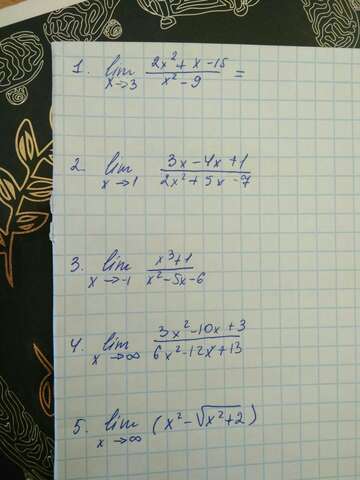 1. lim x→3 (2x² + x - 15)/(x² - 9) =
2. lim x→1 (3x - 4x + 1)/(2x² + 5x - 7)
3. lim x→-1 (x³ + 1)/(x² - 5x - 6)
4. lim x→∞ (3x² - 10x + 3)/(6x² - 12x + 13)
5. lim x→∞ (x² - √(x² + 2))